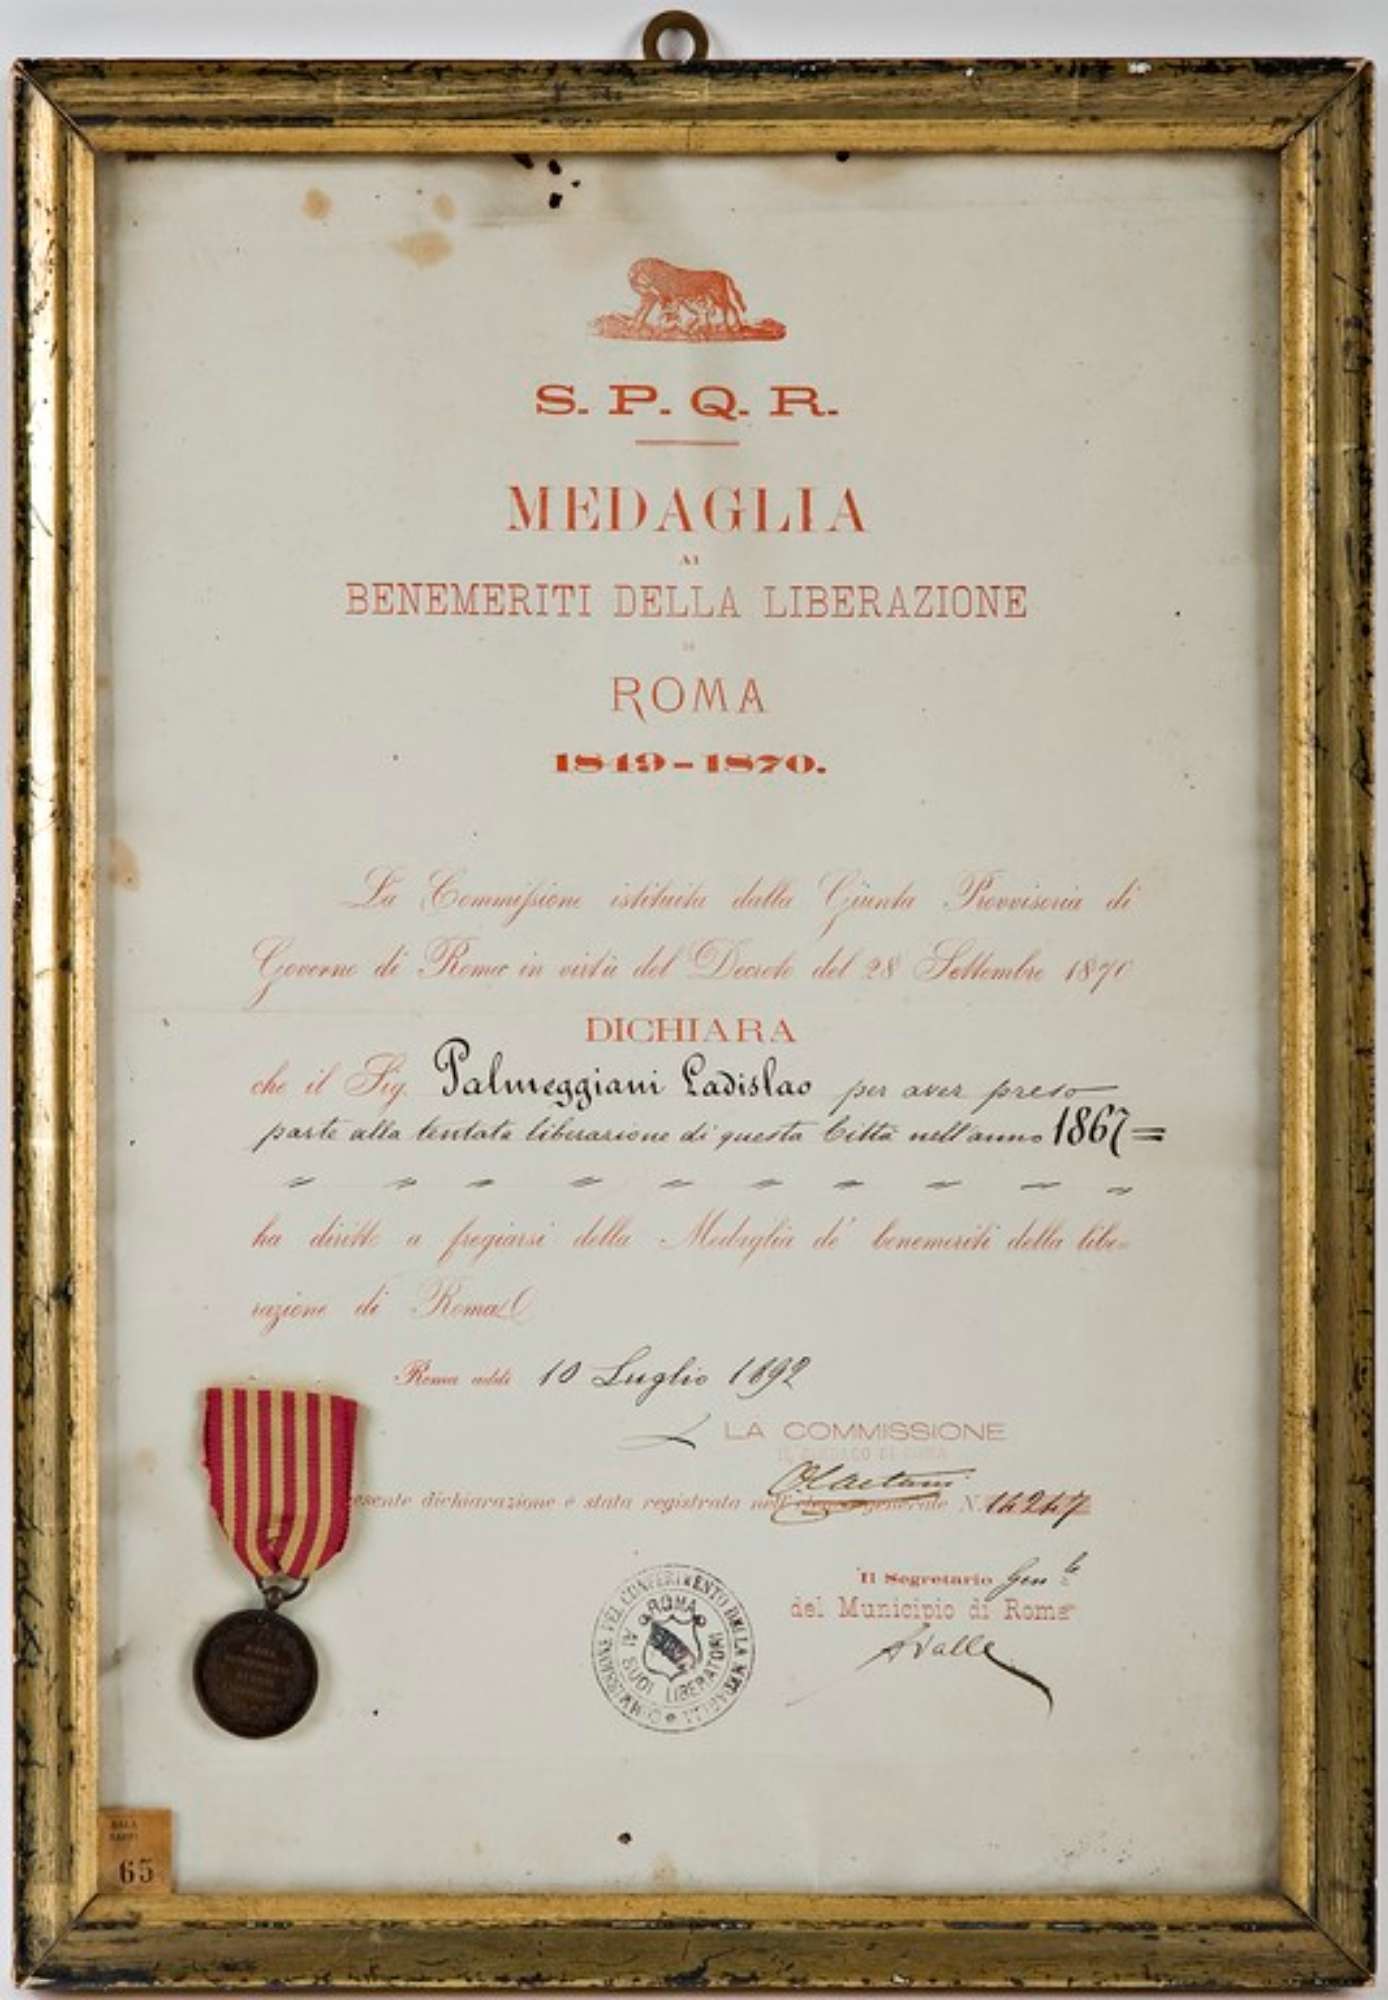 S. P. Q. R.
MEDAGLIA
AI
BENEMERITI DELLA LIBERAZIONE
DI
ROMA
1849-1870.
La Commissione istituita dalla Giunta Provvisoria di
Governo di Roma in virtù del Decreto del 28 Settembre 1870
DICHIARA
che il Sig. Palmeggiani Ladislao per aver preso
parte alla tentata liberazione di questa Città nell'anno 1867=
ha diritto a fregiarsi della Medaglia de' benemeriti della libe=
razione di Roma
Roma addì 10 Luglio 1892
LA COMMISSIONE
IL SINDACO DI ROMA
esente dichiarazione è stata registrata nell'elenco generale N. 14247
Il Segretario Gen le
del Municipio di Roma
AValle
COMMISSIONE PEL CONFERIMENTO DELLA MEDAGLIA
ROMA
AI SUOI LIBERATORI
65